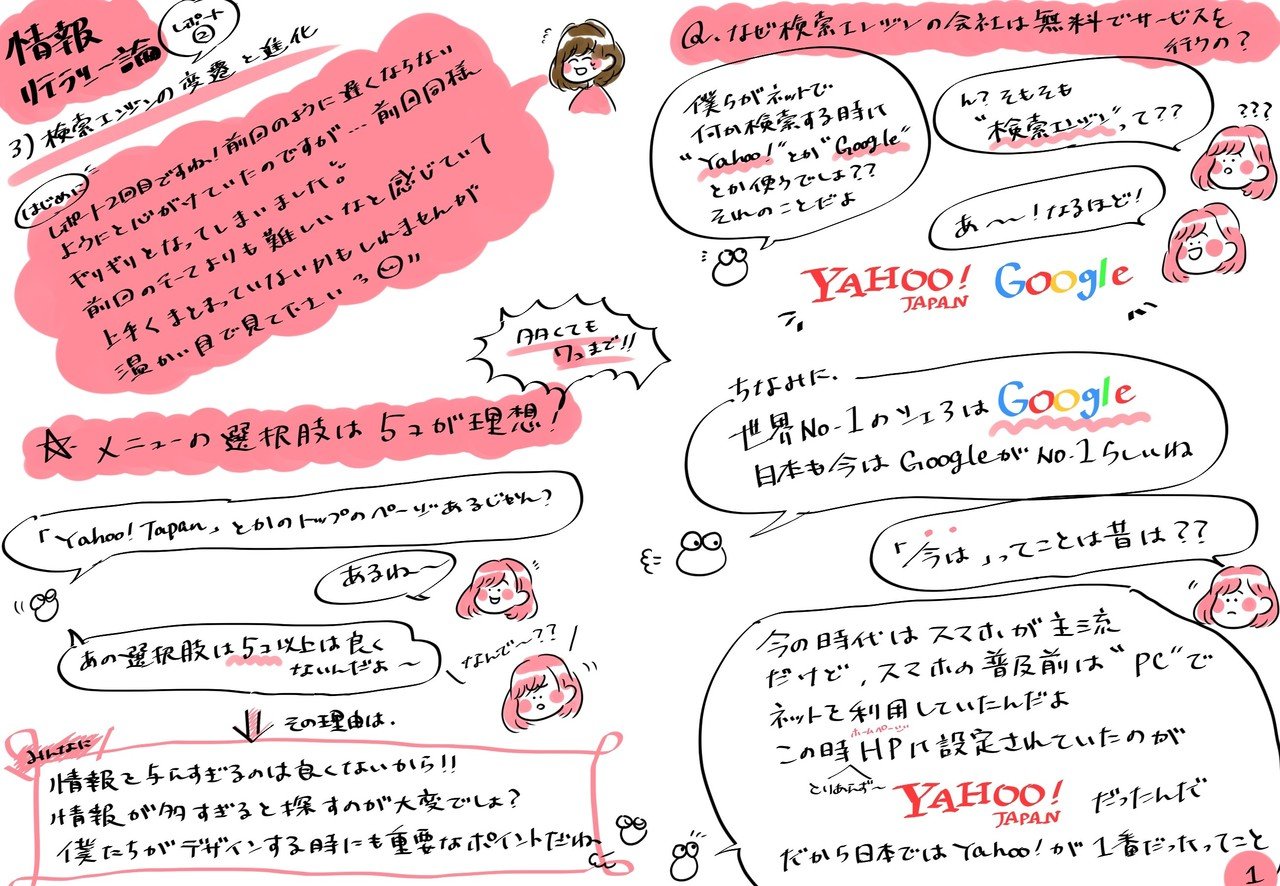 情報
リテラシー論
レポート
②
3) 検索エンジンの変遷と進化
はじめに
レポート2回目ですね！前回のように遅くならない
ようにと心がけていたのですが…前回同様
ギリギリとなってしまいました。
前回のテーマよりも難しいなと感じていて
上手くまとまっていないかもしれませんが
温かい目で見て下さいろ
多くても
7コまで!!
☆メニューの選択肢は5コが理想！
「Yahoo! Japan」とかのトップのページあるじゃん？
あるね〜
あの選択肢は5コ以上は良く
ないんだよ〜
なんで〜??
その理由は.
みんなに
情報を与えすぎるのは良くないから!!
情報が多すぎると探すのが大変でしょ？
僕たちがデザインする時にも重要なポイントだね〜
Q. なぜ検索エンジンの会社は無料でサービスを
行うの？
僕らがネットで
何か検索する時に
"Yahoo!"とか"Google"
とか使うでしょ??
それのことだよ
ん？そもそも
"検索エンジン"って??
???
あ〜〜！なるほど！
YAHOO!
JAPAN
Google
ちなみに.
世界No.1のシェアは Google
日本も今はGoogleがNo.1らしいね
「今は」ってことは昔は??
今の時代はスマホが主流
だけど, スマホの普及前は"PC"で
ネットを利用していたんだよ
ホームページ
この時HPに設定されていたのが
とりあえず〜
YAHOO!
JAPAN
だったんだ
だから日本ではYahoo!が1番だったってこと
1